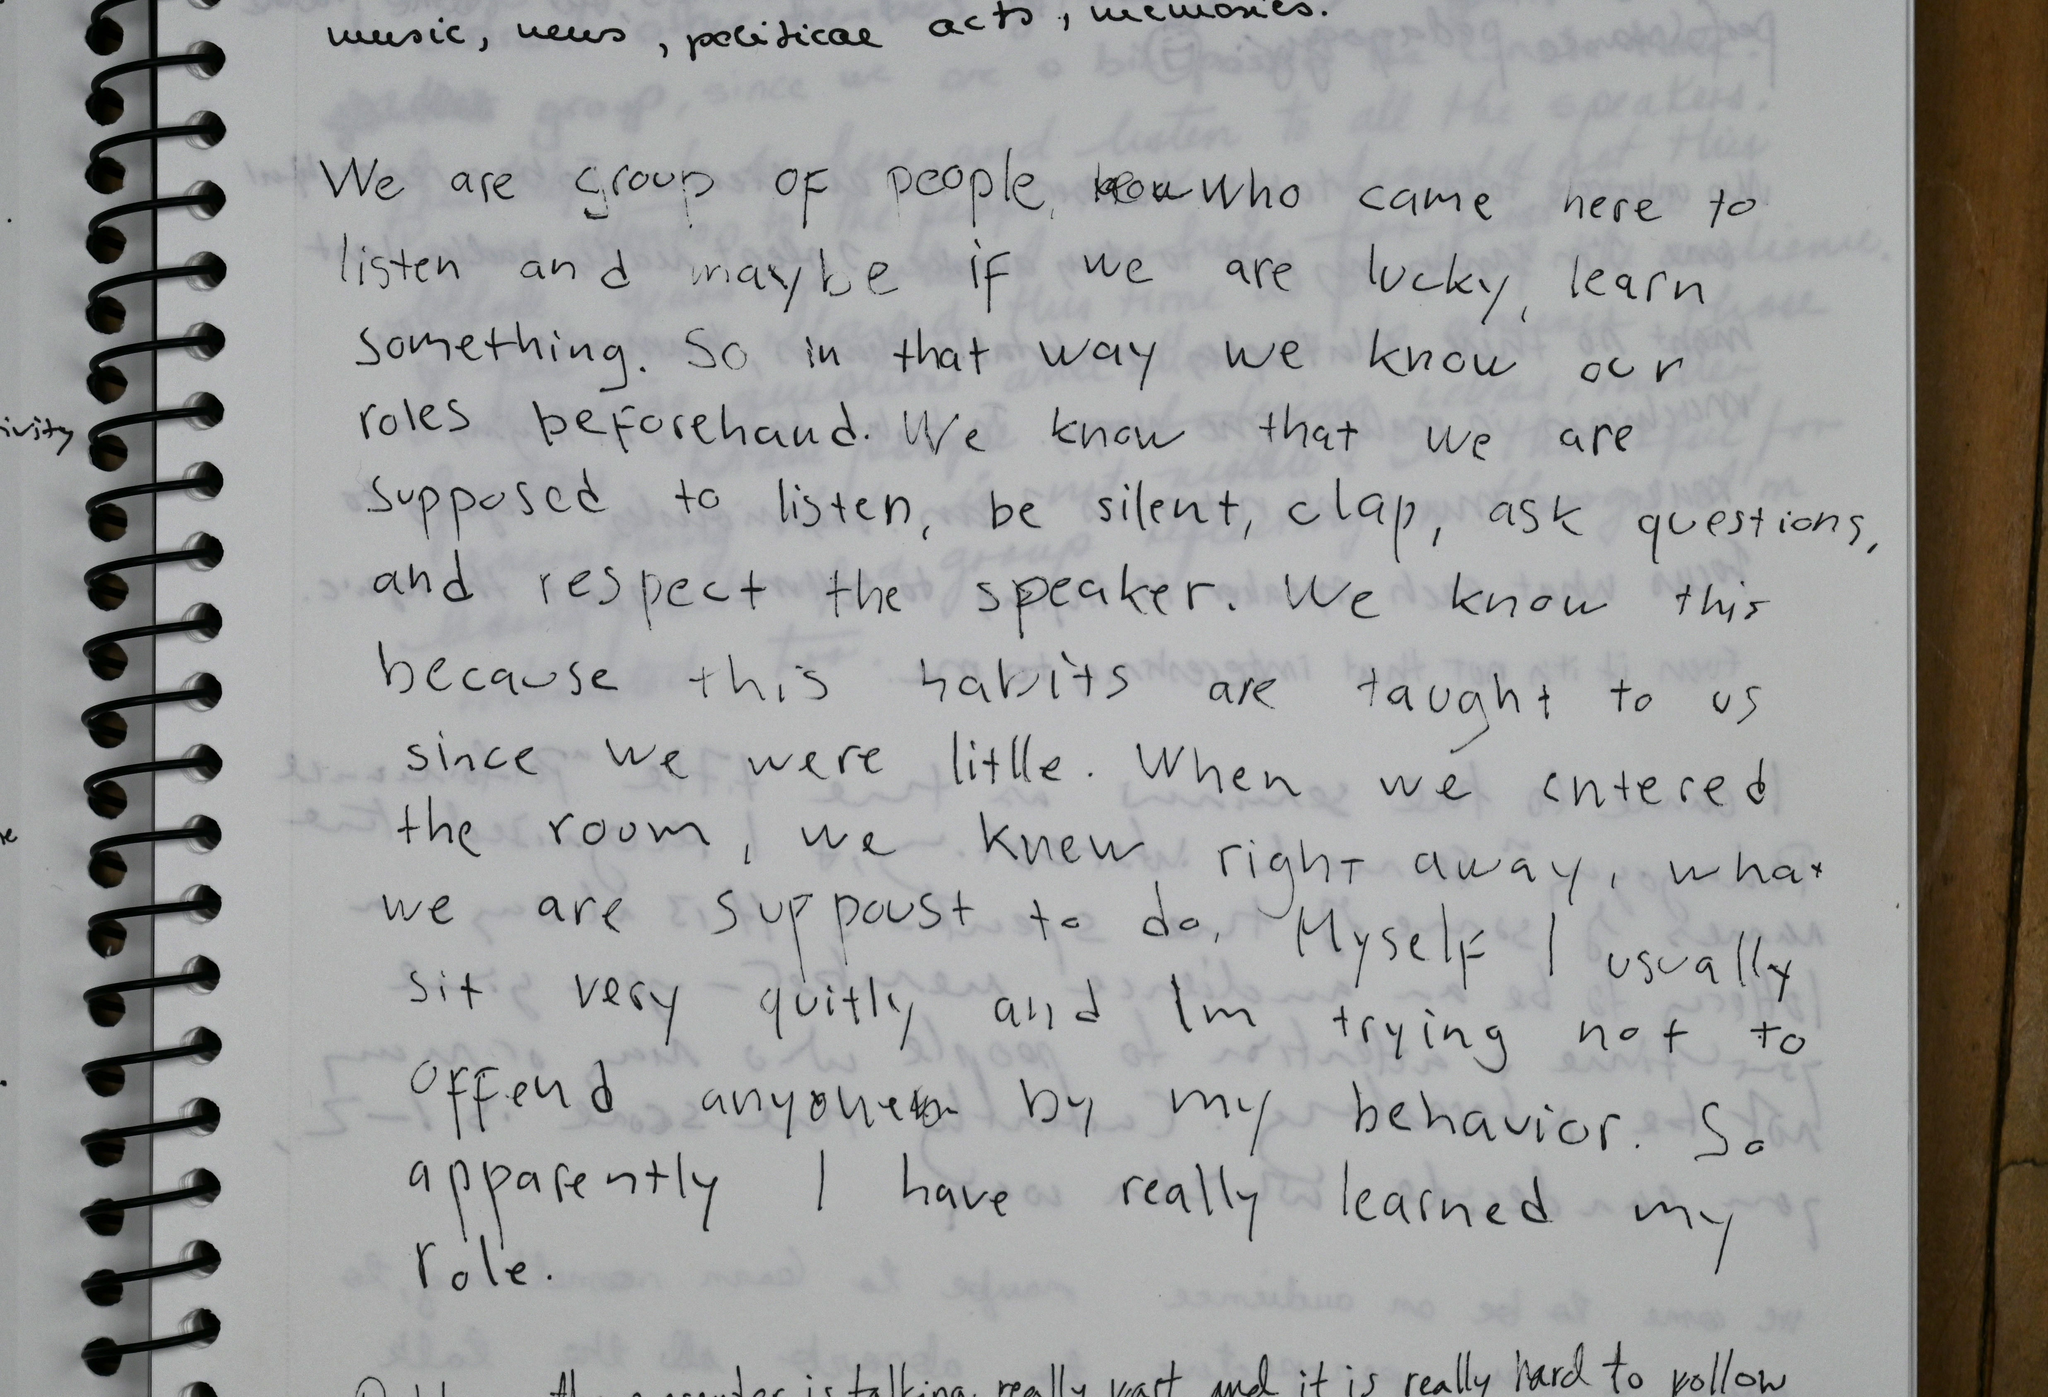 music, news, political acts, memories.
We are group of people, who came here to
listen and maybe if we are lucky, learn
something. So in that way we know our
roles beforehand. We know that we are
supposed to listen, be silent, clap, ask questions,
and respect the speaker. We know this
because this habits are taught to us
since we were litlle. When we entered
the room, we knew right away, what
we are suppoust to do. Myself I usually
sit very quitly and Im trying not to
offend anyone by my behavior. So
apparently I have really learned my
role.
is talking really fast and it is really hard to follow
ivity